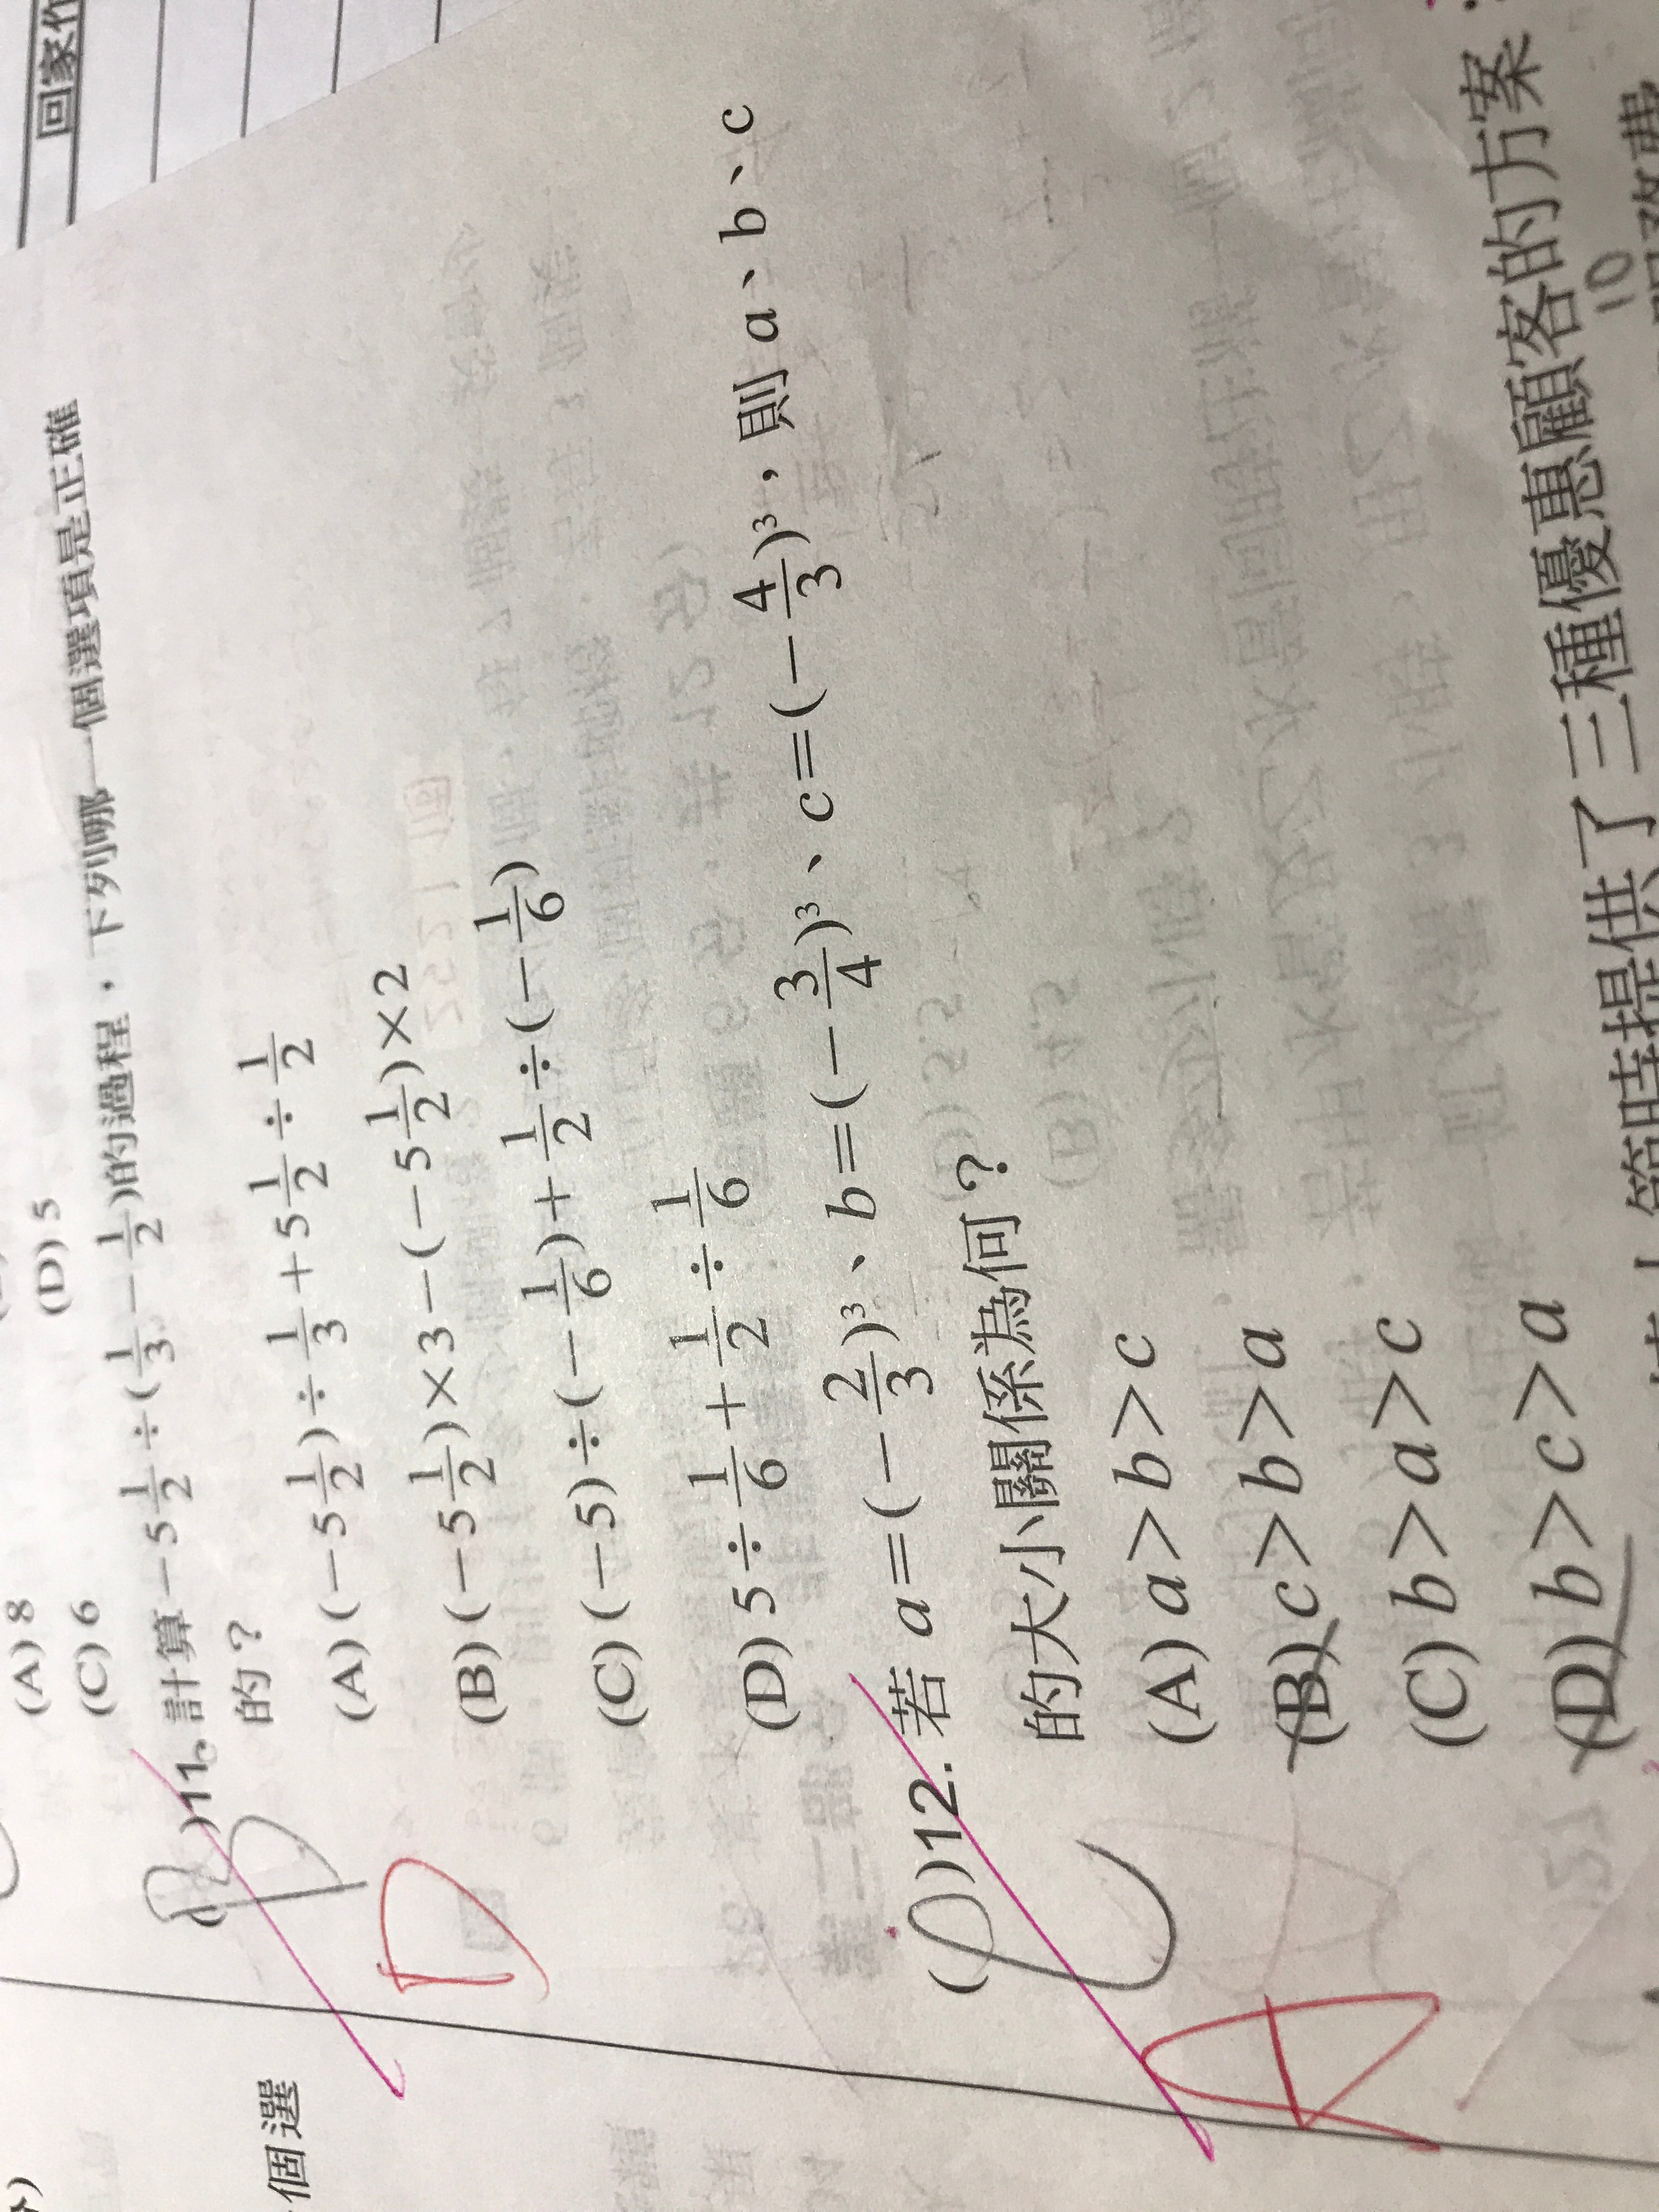 回家作
(D) 5
(A) 8
(C) 6
(B)11. 計算 −5 1/2 ÷(1/3 − 1/2)的過程，下列哪一個選項是正確
的？
(A) (−5 1/2)÷ 1/3 + 5 1/2 ÷ 1/2
(B) (−5 1/2)×3−(−5 1/2)×2
(C) (−5)÷(− 1/6)+ 1/2 ÷(− 1/6)
(D) 5÷ 1/6 + 1/2 ÷ 1/6
D
( )12. 若 a=(− 2/3)³、b=(− 3/4)³、c=(− 4/3)³，則 a、b、c
的大小關係為何？
(A) a>b>c
(B) c>b>a
(C) b>a>c
(D) b>c>a
C
A
提供了三種優惠顧客的方案
10
個選